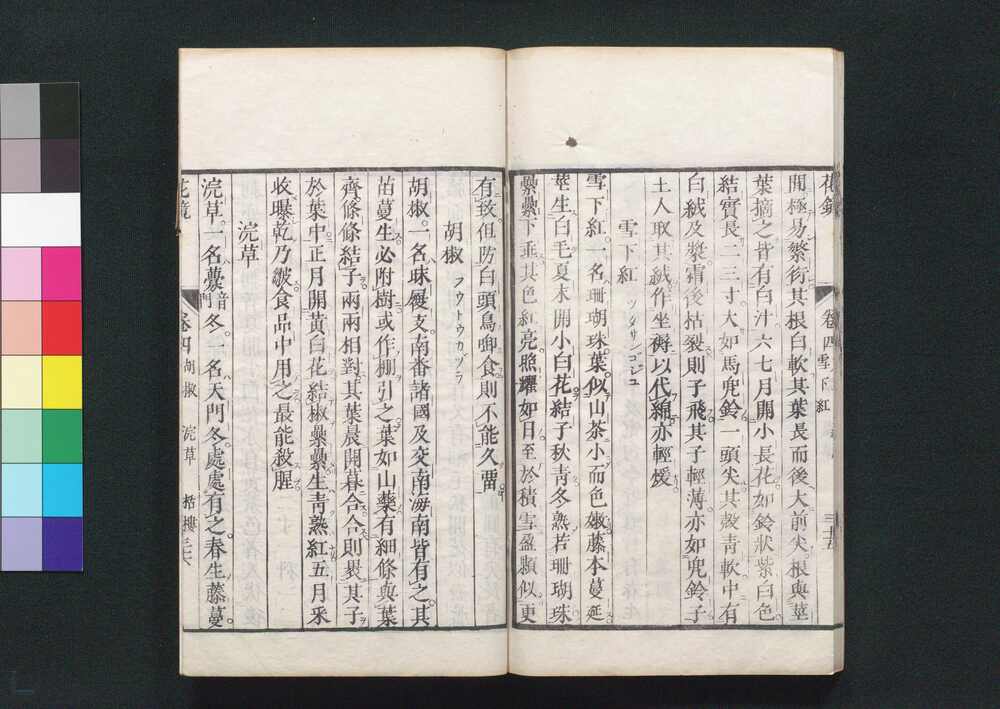 花鏡 卷四 雪下紅 三十五
間極易繁衍其根白軟其葉長而後大前尖根與莖
葉摘之皆有白汁六七月開小長花如鈴狀紫白色
結實長二三寸大如馬兜鈴一頭尖其殼青軟中有
白絨及漿霜後枯裂則子飛其子輕薄亦如兜鈴子
土人取其絨作坐褥以代綿亦輕煖
雪下紅
雪下紅一名珊瑚珠葉似山茶小而色嫩藤本蔓延
莖生白毛夏末開小白花結子秋青冬熟若珊瑚珠
纍纍下垂其色紅亮照耀如日至於積雪盈顆似更
有致但防白頭鳥啣食則不能久畱
胡椒 フウトウカヅラ
胡椒一名昧履支南番諸國及交南海南皆有之其
苗蔓生必附樹或作棚引之葉如山藥有細條與葉
齊條條結子兩兩相對其葉晨開暮合合則裹其子
於葉中正月開黃白花結椒纍纍生青熟紅五月采
收曝乾乃皺食品中用之最能殺腥
浣草
浣草一名虋音門冬一名天門冬處處有之春生藤蔓
花鏡 卷四 胡椒 浣草 栝樓 三十六